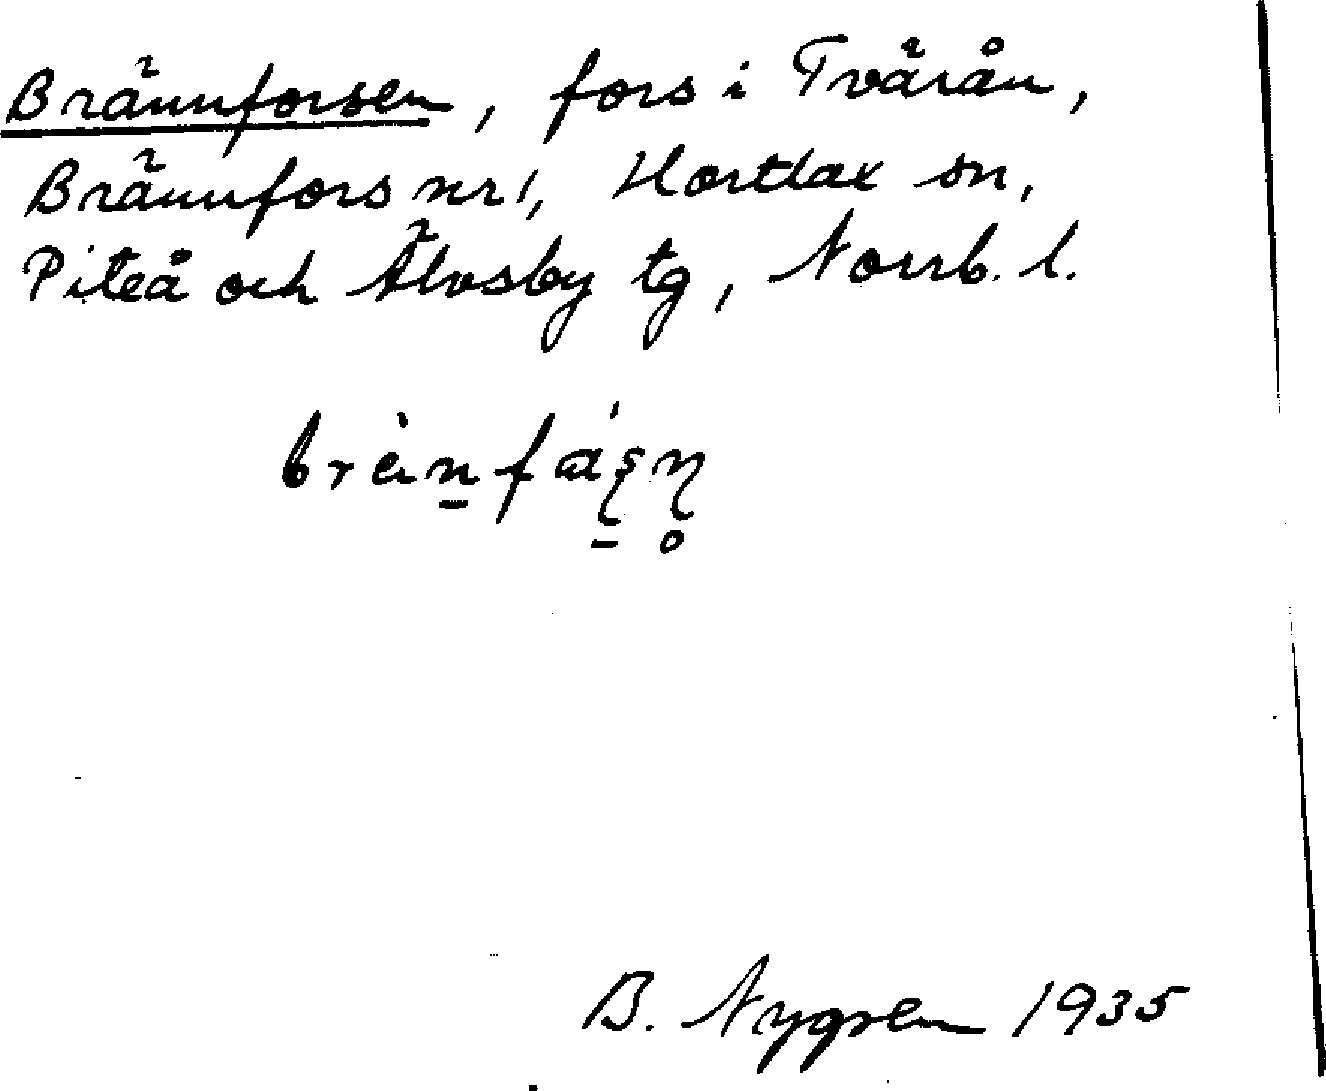 Brännforsen, fors i Tvärån,
Brännfors nr 1, Hortlax sn,
Piteå och Älvsby tg, Norrb. l.
B. Nygren 1935